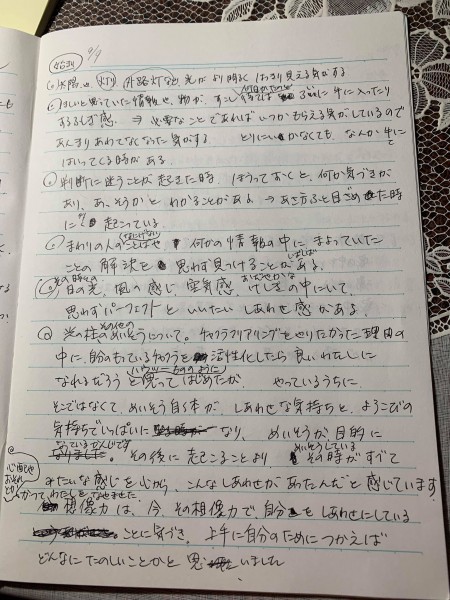 9/9
○太陽や、灯り、外路灯など、光がより明るくはっきり見える気がする
○ほしいと思っていた情報や、物が、すぐに手に入ったり
するふしぎ感 ⇒ 必要なことであればいつかもらえる気がしているので
あんまりあわてなくなった気がする とりにいかなくても、なんか手に
はいってくる時がある。
○判断に迷うことが起きた時、ほうっておくと、何か気づきが
あり、あ、そうかとわかることがある ⇒ あさふと目ざめた時
に起こっている。
○まわりの人のことばや 何かの情報の中に まよっていた
(なにげない)
ことの解決を 思わず見つけることがある。
しばしば
その時々の
○日の光、風の感じ、空気感、けしきの中にいて、
おだやかな
思わずパーフェクトといいたいしあわせ感がある。
その他の
○光の柱のめいそうについて。チャクラクリアリングをやりたかった理由の
中に、自分のもっているチャクラを 活性化したら良いわたしに
(ハウツーもののように)
なれるだろうと思ってはじめたが、 やっているうちに、
そこではなくて、めいそう自体が、しあわせな気持ちと、よろこびの
気持ちでいっぱいに なり、 めいそうが目的に
なっているかんじです
その後に起こることより、 その時がすべて
めいそうしている
みたいな感じを心から、こんなしあわせがあったんだと感じています
心配や
おそれ
とか
かってわたしをなやませました
想像力は、今、その想像力で自分をしあわせにしている
ことに気づき、上手に自分のためにつかえば
どんなにたのしいことかと思いました